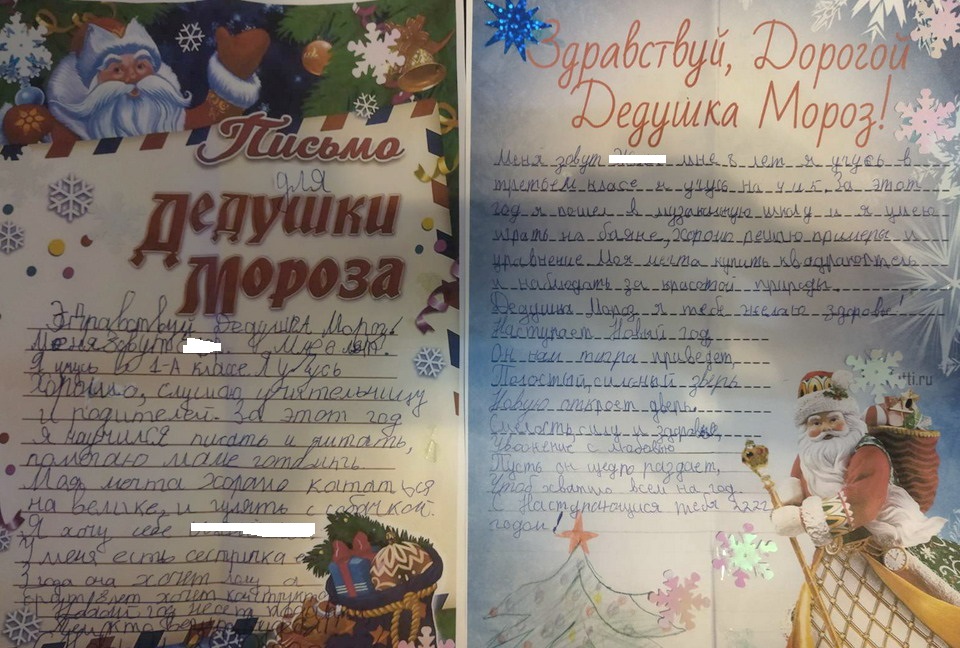 Письмо
для
Дедушки
Мороза
Здравствуй Дедушка Мороз!
Меня зовут
Я учусь во 1-А классе. Я учусь
Хорошо, слушаю учительницу
и родителей. За этот год
я научился писать и читать,
помогаю маме готовить.
Моя мечта хорошо кататься
на велике, и гулять с собачкой.
Я хочу себе
У меня есть сестричка
3 года она хочет
хочет конструктор
Новый год несет
Здравствуй, Дорогой
Дедушка Мороз!
Меня зовут мне 8 лет я учусь в
третьем класе и учусь на За этот
год я пошел в музыкальную школу и я умею
играть на баяне, хорошо решаю примеры и
уравнение Моя мечта купить квадракоптель
и наблюдать за красотой природы.
Дедушка Мороз я тебе желаю здоровья!
Наступает Новый год
Он нам тигра приведет,
Полостый, сильный зверь
Новую откроет дверь.
Смелость, силу и здоровье,
Уважение с любовью
Пусть он щедро раздает,
Чтоб хватило всем на год.
С Наступающися тебя 2222
годом!
ti.ru